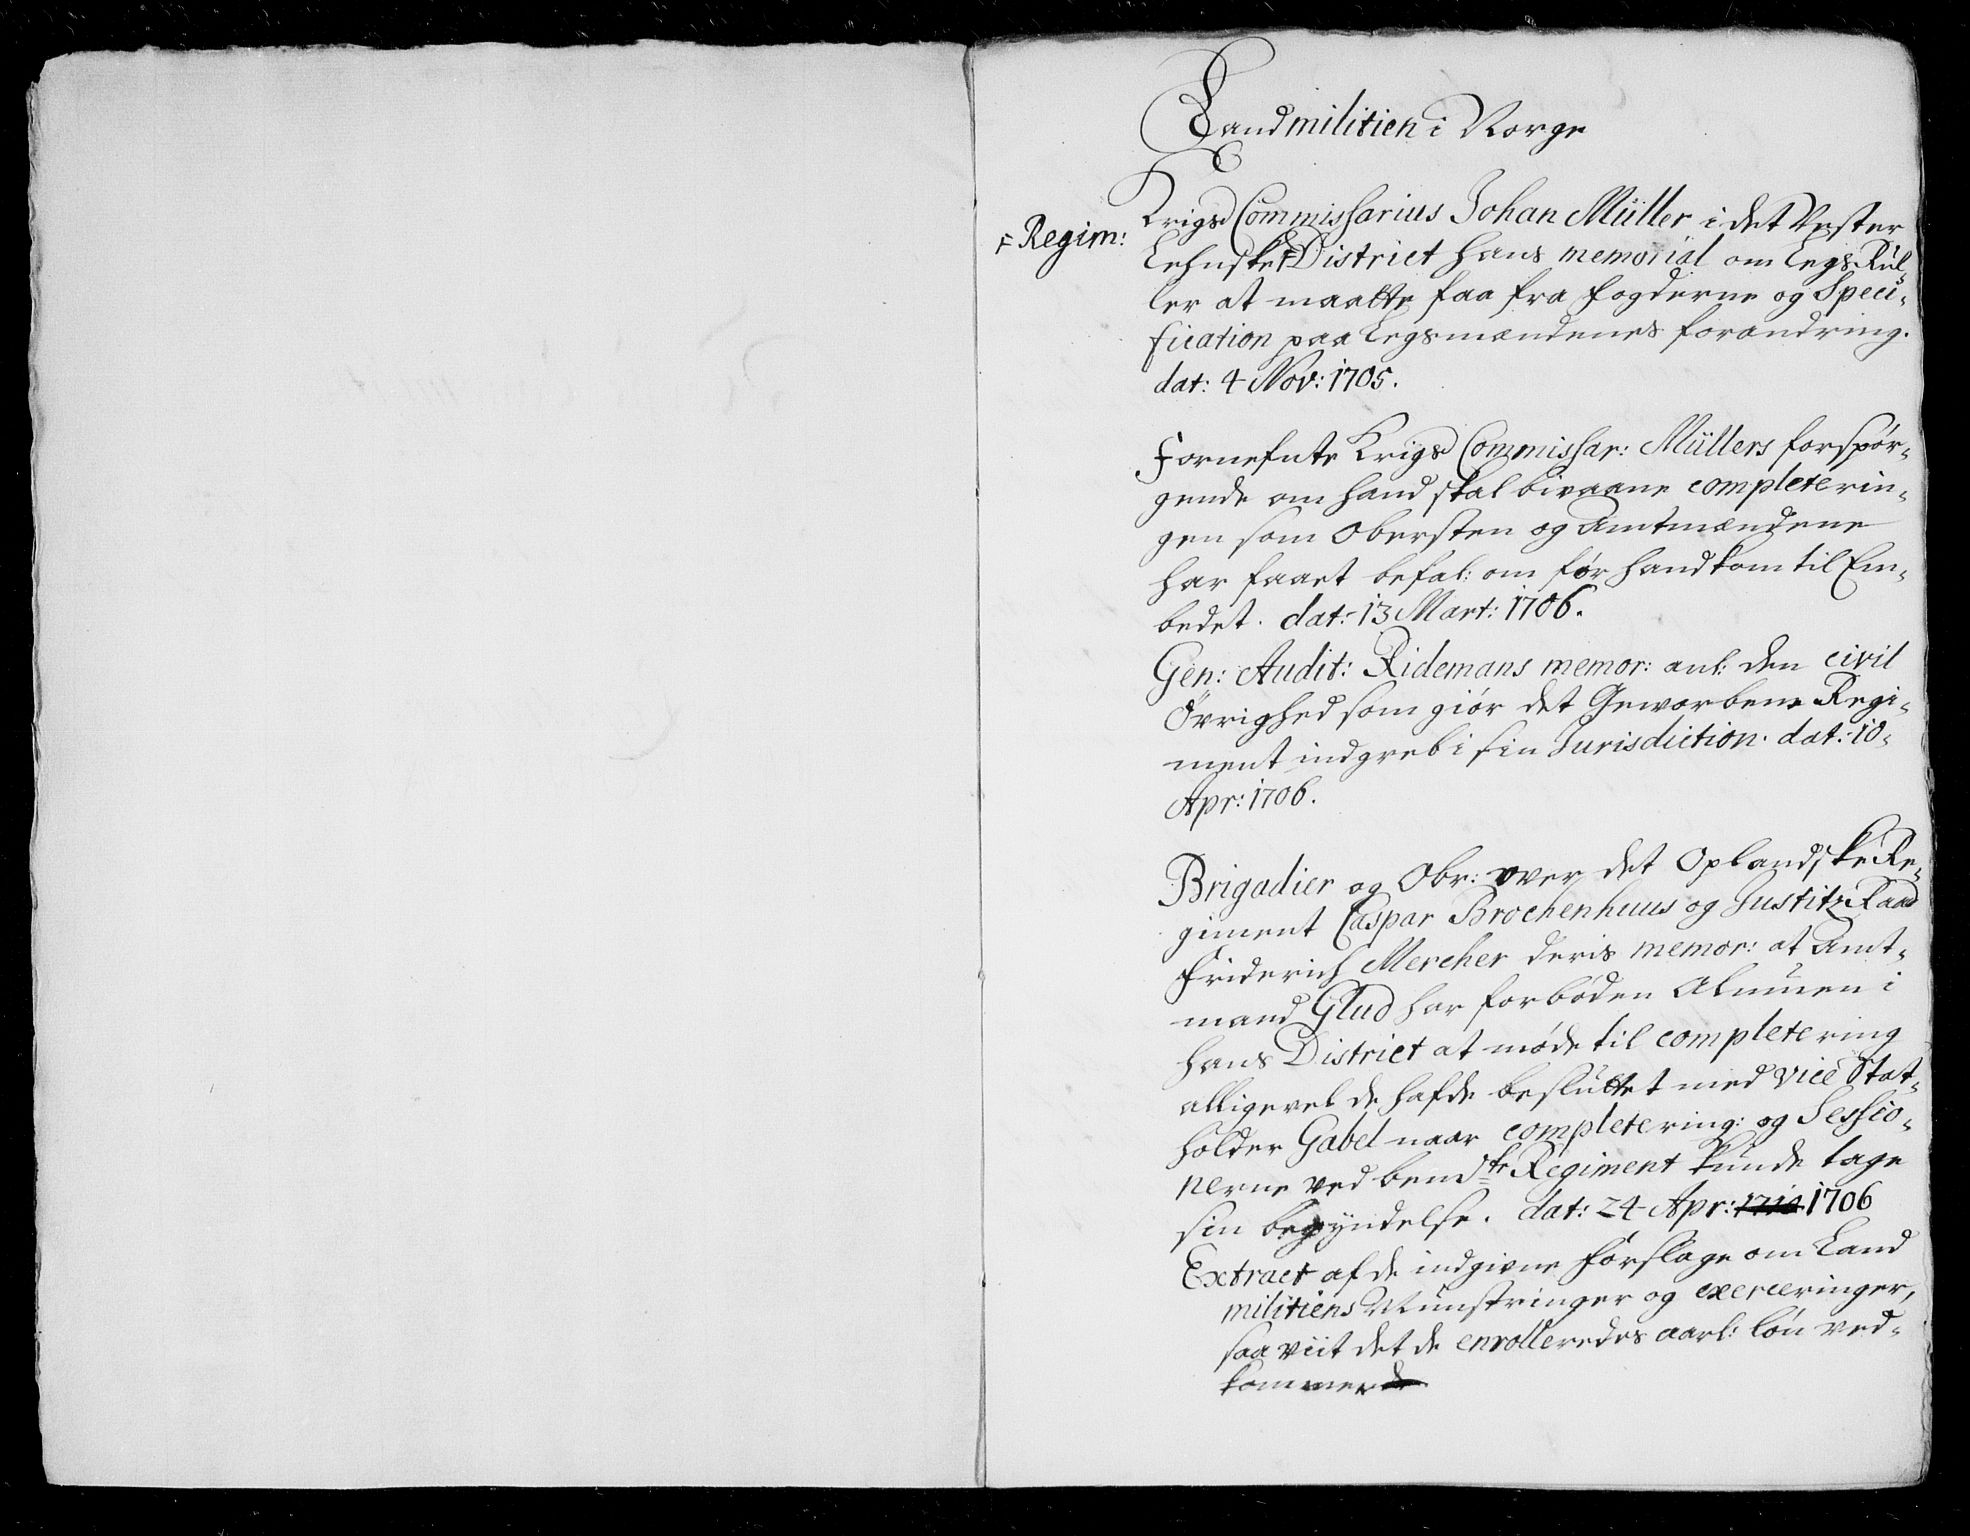 Landmilitien i Norge
Krigs Commissarius Johan Müller i det Vester
⹀ Regim:
Lehnske⹀ District hans memorial om Legs Rul-
ler at maatte faa fra fogderne og Speci-
fication paa Legsmændenes forandring.
dat: 4 Nov: 1705.
Fornefnte Krigs Commissar: Müllers forspør-
gende om hand skal bivaane completerin-
gen som Obersten og Amtmændene
har faaet befal: om før hand kom til Em-
bedet. dat: 13 Mart: 1706.
Gen: Audit: Ridemans memor: anl: den civil
Øvrighed som giør det Geworbene Regi-
ment indgreb i sin Jurisdiction. dat: 10
Apr: 1706.
Brigadier og Obr: over det Oplandske Re-
giment Caspar Brochenhuus og Justitz Raad
Friderich Mercher deris memor: at Amt-
mand Glud har forbøden Almuen i
hans District at møde til completering
alligevel de hafde besluttet med Vice Stat-
holder Gabel naar completering: og Sessio-
nerne ved bemte Regiment kunde tage
sin begyndelse. dat: 24 Apr: 1710 1706
Extract af de indgivne forslage om Land
militiens Munstringer og exerceringer,
saa viit det de enrolleredes aarl: løn ved-
kommer